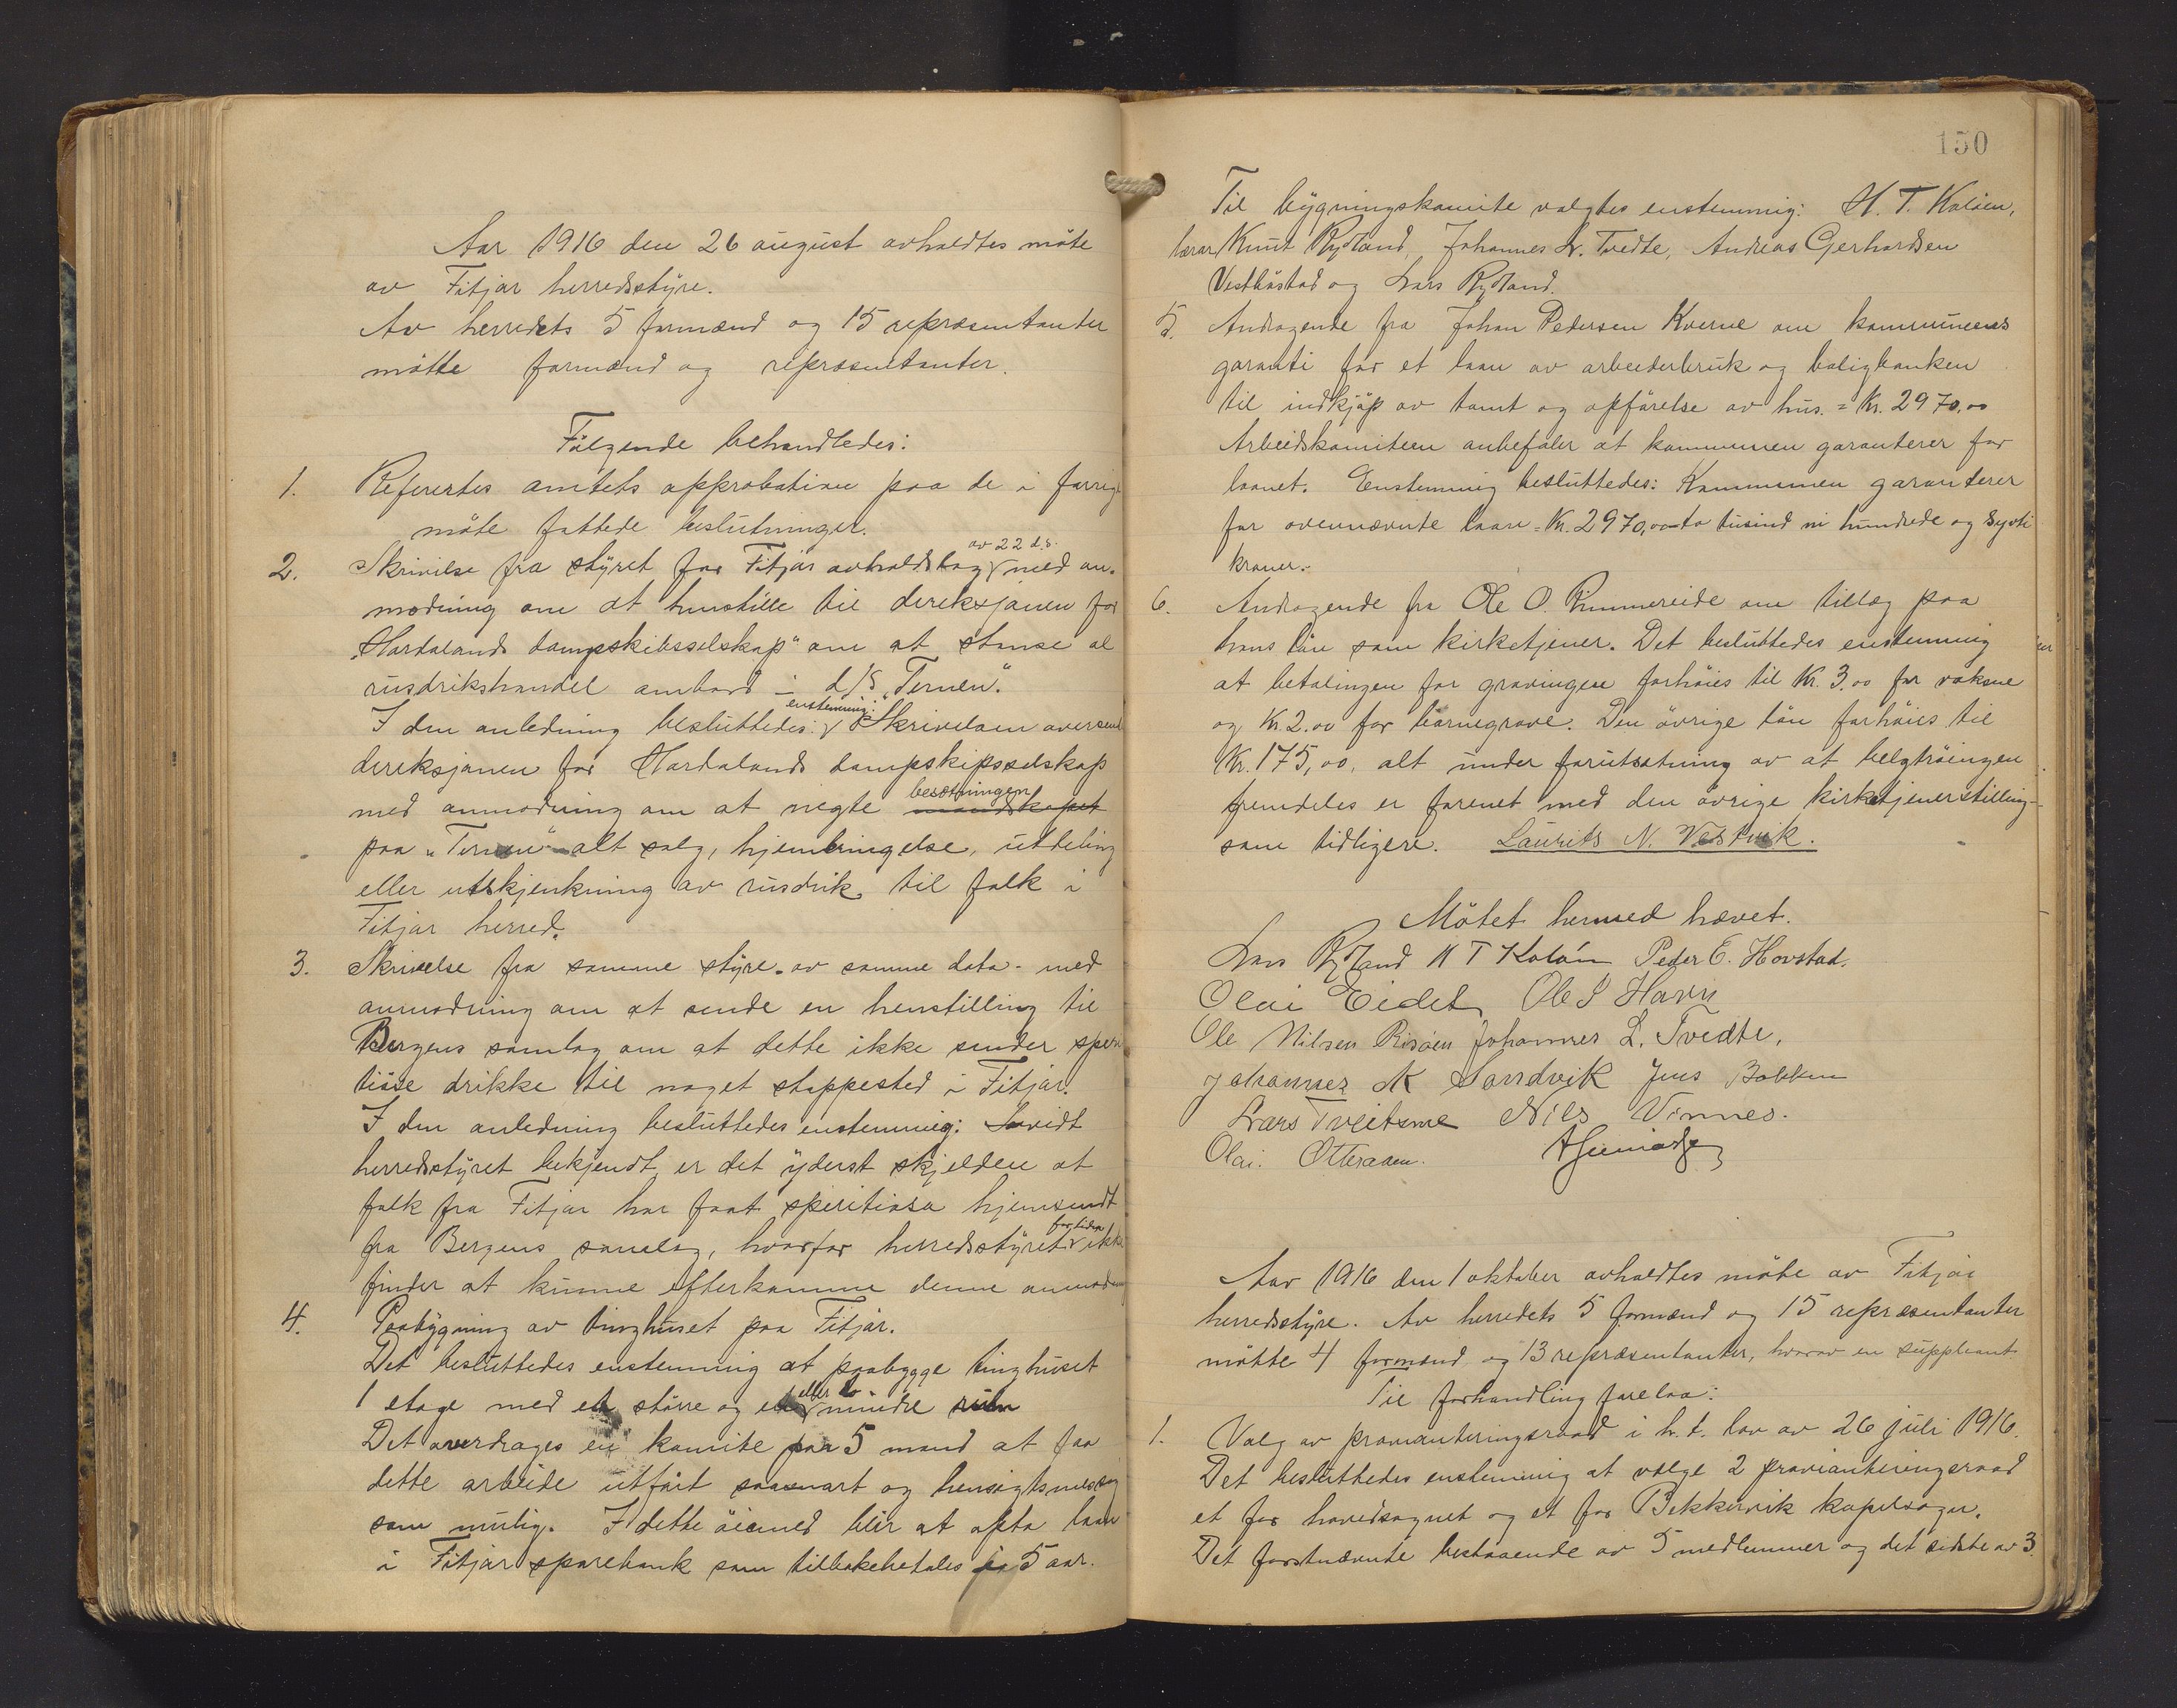 Aar 1916 den 26 august avholdtes möte
av Fitjar herredsstyre.
Av herredets 5 formænd og 15 repræsentanter
mötte formænd og repræsentanter.
Fölgende behandledes:
1. Referertes amtets approbation paa de i forrige
möte fattede beslutninger.
2. Skrivelse fra styret for Fitjar avholdslag av 22 d.s. med an-
modning om at henstille til direksjonen for
"Hordalands dampskibsselskap" om at stanse al
rusdrikshandel ombord i d/S "Ternen".
I den anledning besluttedes enstemmig: Skrivelsen oversend
direksjonen for Hordalands dampskipsselskap
med anmodning om at negte mandskapet besætningen
paa "Ternen" alt salg, hjembringelse, utdeling
eller utskjenkning av rusdrik til folk i
Fitjar herred.
3. Skrivelse fra samme styre - av samme dato - med
anmodning om at sende en henstilling til
Bergens samlag om at dette ikke sender spiri
tiöse drikke til noget stoppested i Fitjar.
I den anledning besluttedes enstemmig: Saavidt
herredsstyret bekjendt, er det yderst skjelden at
folk fra Fitjar har faat spiritiosa hjemsendt
fra Bergens samlag, hvorfor herredsstyret for tiden ikke
finder at kunne efterkomme denne anmodning
4. Paabygning av tinghuset paa Fitjar.
Det besluttedes enstemmig at paabygge tinghuset
1 etage med et större og et eller to mindre rum
Det overdrages en komite paa 5 mand at faa
dette arbeide utfört saasnart og hensigtsmessig
som mulig. I dette öiemed blir at opta laan
i Fitjar sparebank som tilbakebetales paa 5 aar.
150
Til bygningskomite valgtes enstemmig: H. T. Koløen,
lærar Knut Rydland, Johannes L. Tvedte, Andreas Gerhardsen
Vestböstad og Lars Rydland.
5. Andragende fra Johan Pedersen Kverne om kommunens
garanti for et laan av arbeiderbruk og boligbanken
til indkjöp av tomt og opförelse av hus = Kr. 2970,00
Arbeidskomiteen anbefaler at kommunen garanterer for
laanet. Enstemmig besluttedes: Kommunen garanterer
for ovennævnte laan = Kr. 2970,00 to tusind ni hundrede og sytti
kroner.-
6. Andragende fra Ole O. Rimmereide om tillæg paa
hans lön som kirketjener. Det besluttedes enstemmig
at betalingen for gravingen forhöies til Kr. 3.00 for voksne
og Kr 2.00 for barnegrave. Den övrige lön forhöies til
Kr. 175,00, alt under forutsætning av at belgtröingen
fremdeles er forenet med den övrige kirketjenerstilling
som tidligere. Laurits N. Vestvik.
Mötet hermed hævet.
Lars Rydland H T Koløen Peder E. Hovstad.
Olai Eidet Ole J Havn
Ole Nilsen Risöen Johannes L. Tvedte.
Johannes K Sandvik Jens Bakken
Lars Tveitsme Nils Vinnes.
Olai Otteraaen.
Aar 1916 den 1 oktober avholdtes möte av Fitjar
herredsstyre. Av herredets 5 formænd og 15 repræsentanter
mötte 4 formænd og 13 repræsentanter, hvorav en suppleant
Til forhandling forelaa:
1. Valg av provianteringsraad i h.t. lov av 26 juli 1916.
Det besluttedes enstemmig at vælge 2 provianteringsraad
et for hovedsognet og et for Bekkervik kapelsogn.
Det förstnævnte bestaaende av 5 medlemmer og det sidste av 3